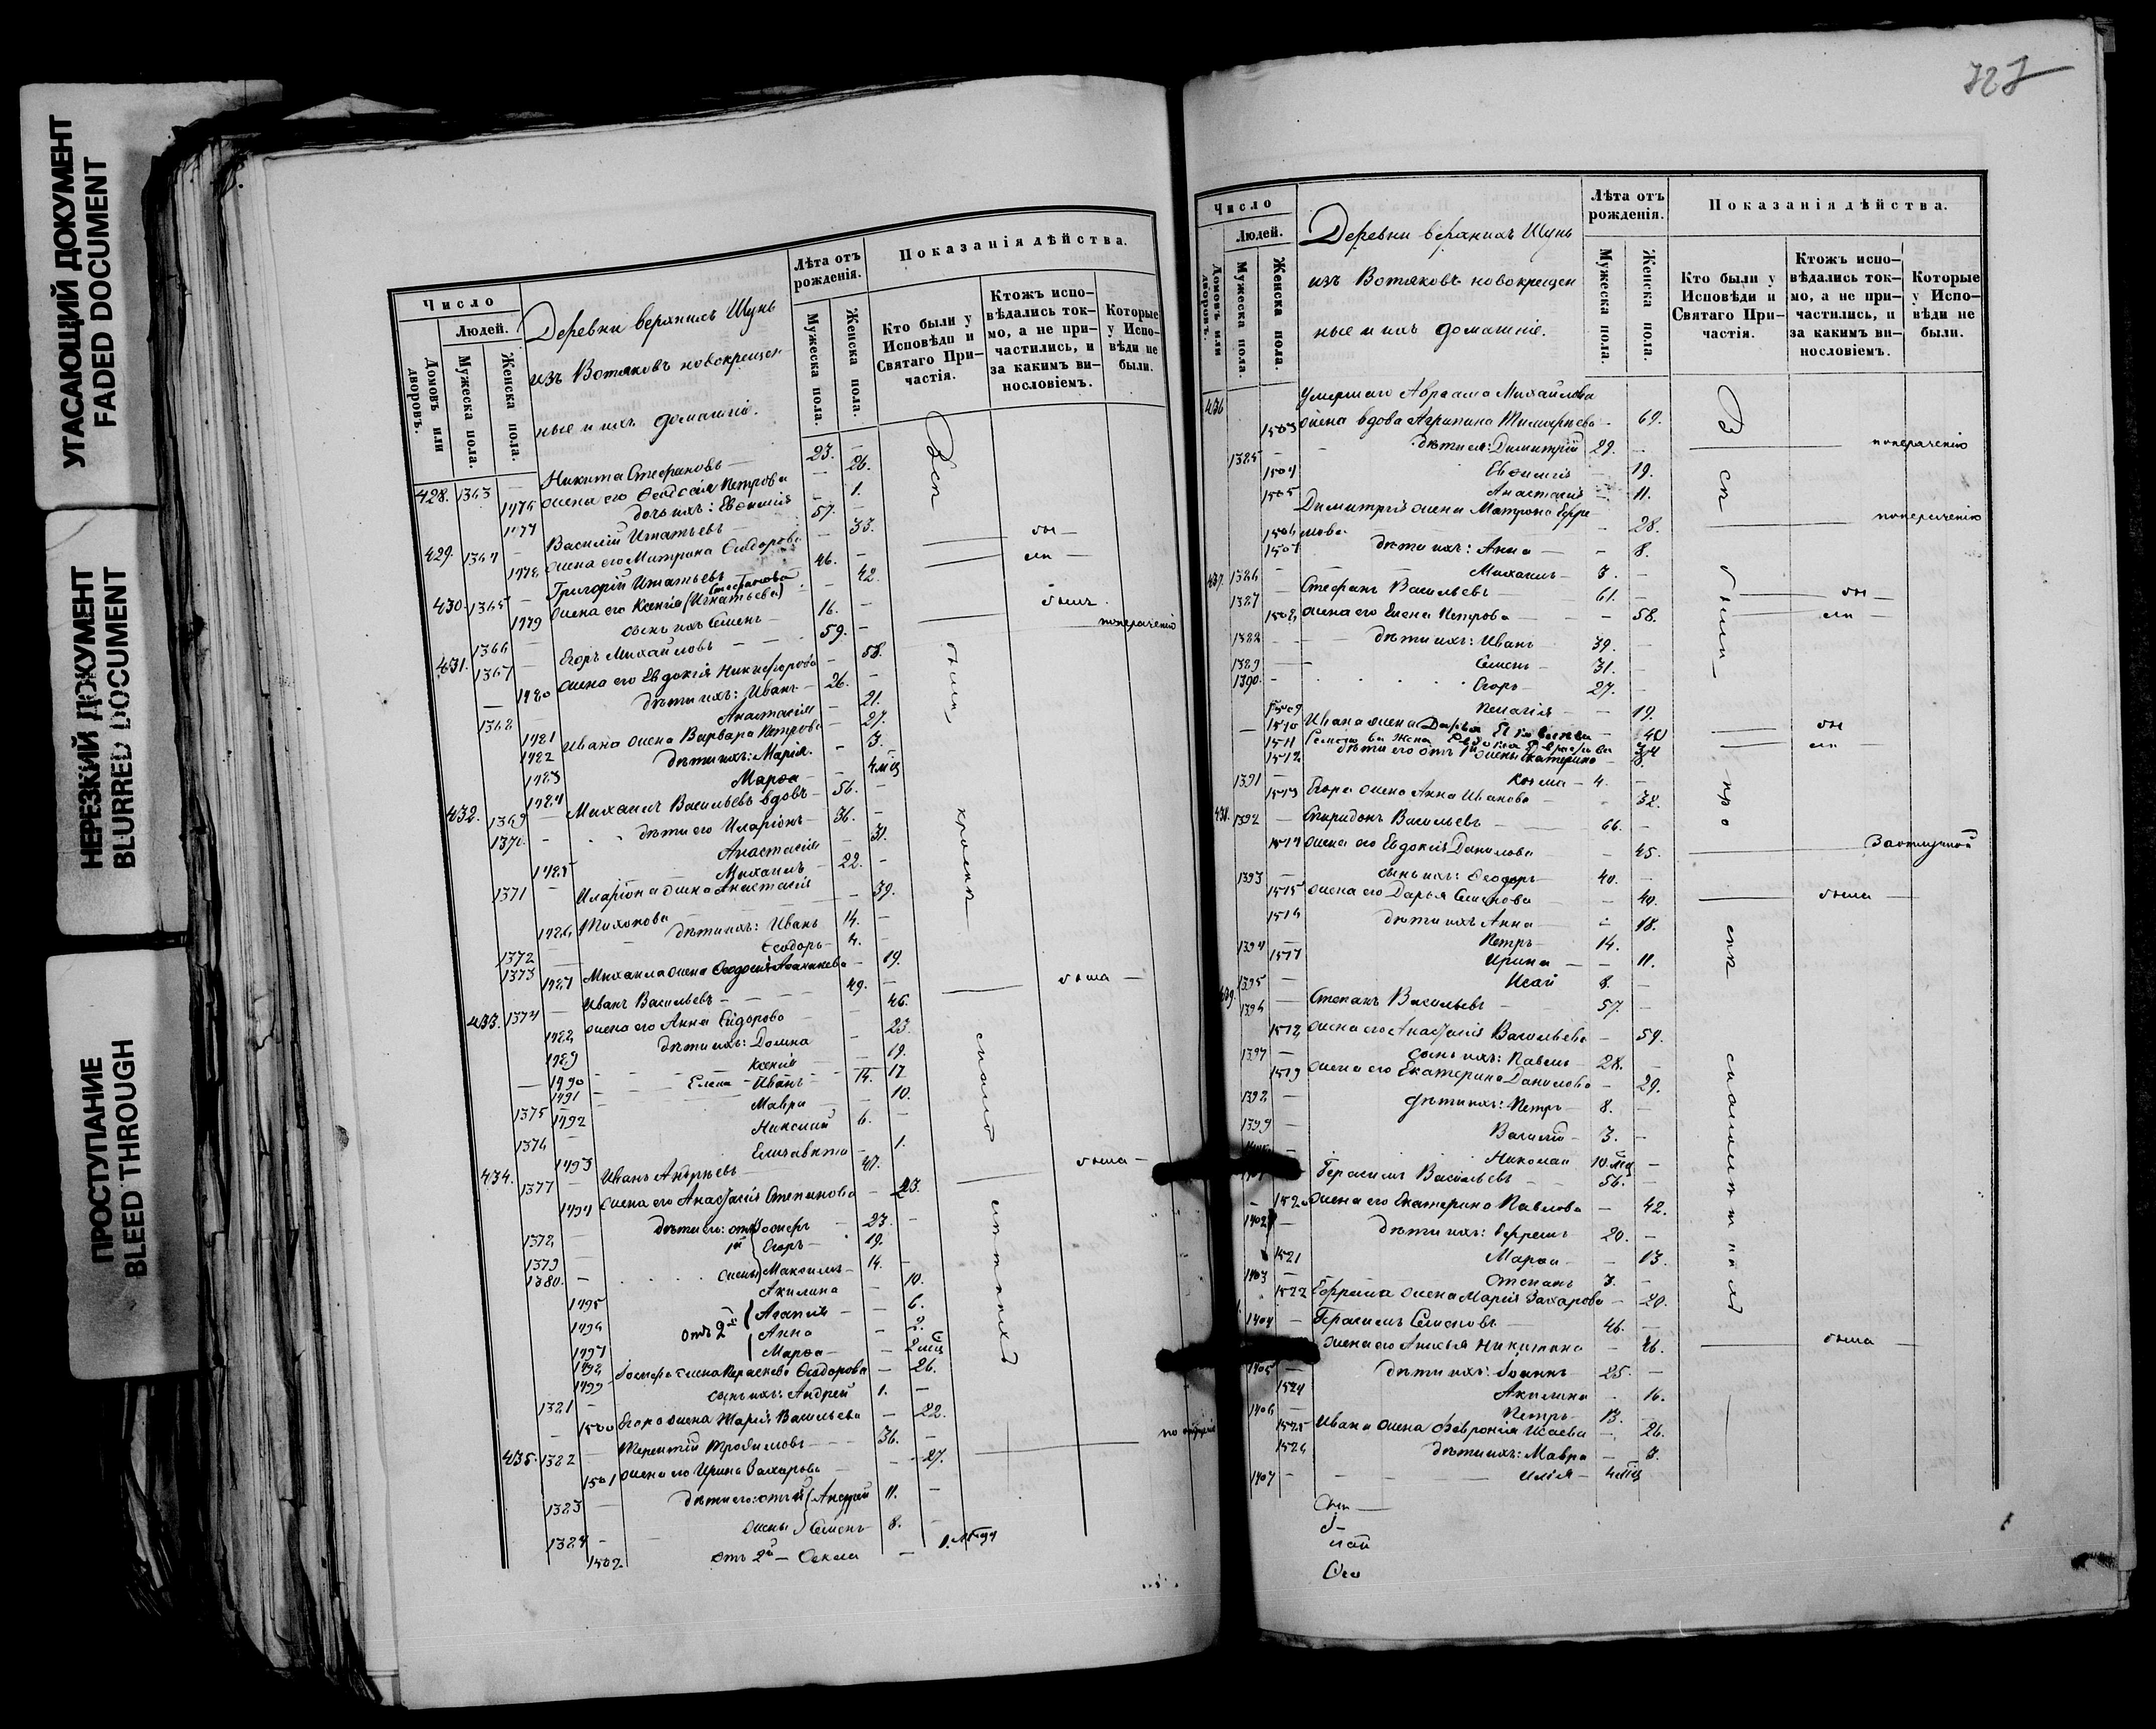 УГАСАЮЩИЙ ДОКУМЕНТ
FADED DOCUMENT
НЕРЕЗКИЙ ДОКУМЕНТ
BLURRED DOCUMENT
ПРОСТУПАНИЕ
BLEED THROUGH
Число
Людей.
Домовъ или дворовъ.
Мужеска пола.
Женска пола.
Деревни верхнихъ Шунь
изъ Вотяковъ новокрещен-
ные и ихъ домашніе.
Лѣта отъ рожденія.
Мужеска пола.
Женска пола.
Показанія дѣйства.
Кто были у Исповѣди и Святаго Причастія.
Ктожъ исповѣдались токмо, а не причастились, и за какимъ винословіемъ.
Которые у Исповѣди не были.
428. 1363 — Никита Стефановъ — 23. —
1476 жена его Ѳеодосія Петрова — 26.
1477 дочь ихъ: Евѳимія — 1.
429. 1364 — Василій Игнатьевъ 57. —
1478 жена его Матрона Сидорова — 33.
430. 1365 — Григорій Игнатьевъ 46. —
Степанова
1479 жена его Ксенія (Игнатьева) — 42.
1366 — сынъ ихъ Семенъ 16. —
431. 1367 — Егоръ Михайловъ 59. — по нераченію
1480 жена его Евдокія Никифорова — 58.
1368 — дѣти ихъ: Иванъ 26. —
1481 Анастасія — 21.
1482 Ивана жена Варвара Петрова — 27.
1483 дѣти ихъ: Марія — 3.
1484 Марѳа — 4 мѣ
432. 1369 — Михаилъ Васильевъ вдовъ 56. —
1370 дѣти его Иларіонъ 36. —
1485 Анастасія — 31.
1371 — Михаилъ 22. —
Иларіона жена Анастасія
1486 Тихонова — 39.
1372 дѣти ихъ: Иванъ 14. —
1373 Ѳеодоръ 4. —
1487 Михаила жена Ѳеодосія — 19.
433. 1374 — Иванъ Васильевъ 49. —
1488 жена его Анна Сидорова — 46.
1489 дѣти ихъ: Домна — 23.
1490 Ксенія — 19.
1491 Елена — Иванъ 14. 17
1375 1492 Мавра — 10.
1376 Николай 6. —
1493 Елисавета — 1.
434. 1377 — Иванъ Андреевъ 47. —
1494 жена его Анастасія Степанова — 23.
1378 — дѣти его: отъ 23. —
1379 — 1й Егоръ 19. —
1380. — жены Максимъ 14. —
1495 Акилина — 10.
1496 отъ 2й Агапія — 6.
1497 Анна — 2.
1498 Марѳа — 2 мѣс
1499 жена Параскева Сидорова — 26.
1381 — сынъ ихъ: Андрей 1. —
1500 Егора жена Марія Васильева — 22.
435. 1382 — Терентій Трофимовъ 36. —
1501 жена его Ирина Захарова — 27.
1383 — дѣти его: отъ 1й Андрей 11. —
1384 — жены Семенъ 8. —
1502 отъ 2й — Ѳекла —
727
Число
Людей.
Домовъ или дворовъ.
Мужеска пола.
Женска пола.
Деревни верхнихъ Шунь
изъ Вотяковъ новокрещен
ные и ихъ домашніе.
Лѣта отъ рожденія.
Мужеска пола.
Женска пола.
Показанія дѣйства.
Кто были у Исповѣди и Святаго Причастія.
Ктожъ исповѣдались токмо, а не причастились, и за какимъ винословіемъ.
Которые у Исповѣди не были.
436 Умершаго Авраама Михайлова
1503 жена вдова Агрипина Тимофеева — 69.
1385 — дѣти ея: Димитрій 29. — по нераченію
1504 Евѳимія — 19.
1505 Анастасія — 11.
Димитрія жена Матрона Ефре
1506 мова — 28. по нераченію
1507 дѣти ихъ: Анна — 8.
1386 — Михаилъ 3. —
437. 1387 — Стефанъ Васильевъ 61. —
1508 жена его Елена Петрова — 58.
1388 — дѣти ихъ: Иванъ 39. —
1389 Семенъ 31. —
1390. — Егоръ 27. —
1509 Пелагія — 19.
1510 Ивана жена Дарья
1511
1512 дѣти его отъ 1й жены Екатерина
1391 — Козма 4. —
1513 Егора жена Анна Иванова — 32.
438. 1392 — Спиридонъ Васильевъ 66. —
1514 жена его Евдокія Данилова — 45. За отлучкой
1393 — сынъ ихъ: Ѳеодоръ 40. —
1515 жена его Дарья Семенова — 40. была
1516 дѣти ихъ Анна — 18.
1394 — Петръ 14. —
1517 Ирина — 11.
1395 — Исай 8. —
439. 1396 — Степанъ Васильевъ 57. —
1518 жена его Анастасія Васильева — 59.
1397 — сынъ ихъ: Павелъ 28. —
1519 жена его Екатерина Данилова — 29.
1398 — дѣти ихъ: Петръ 8. —
1399 — Василій 3. —
Николай 10 мѣс —
Герасимъ Васильевъ 56. —
1520 жена его Екатерина Павлова — 42.
1402 — дѣти ихъ: Ефремъ 20. —
1521 Марѳа — 13.
1403 — Степанъ 3. —
1522 Ефрема жена Марія Захарова — 20.
1404 — Герасимъ Семеновъ 46. —
жена его Никитина — 46. была
1405 — дѣти ихъ: Іоаннъ 25. —
1524 Акилина — 16.
1406 — Петръ 13. —
1525 Ивана жена Февронія Исаева — 26.
1526 дѣти ихъ: Мавра — 3.
1407 — Илія 4 мѣс